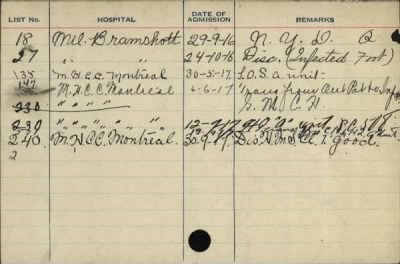 LIST NO. HOSPITAL DATE OF ADMISSION REMARKS
18 Mil. Bramshott 29-9-16 N.Y.D. Q
27 " 24-10-16 Disc. (Infected Foot)
135 M.H.C.C. Montreal 30-5-17. T.O.S. a unit.
147 M.H.C.C. Montreal 6-6-17 Trans from Out Pat to Inp
230 " " " " G. M. C. H
230 " " " " Montreal 12-9-17 "a" unit
240 M.H.C.C. Montreal. 30-9-17 Dis. A. I good.
2